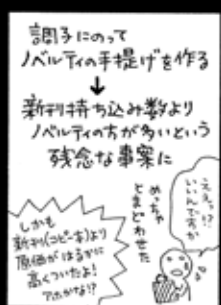 調子にのって
ノベルティの手提げを作る
↓
新刊持ち込み数より
ノベルティの方が多いという
残念な事案に
ええっ!?
いいんですか
めっちゃ
とまどわせた
しかも
新刊(コピー本)より
原価がはるかに
高くついたよ!
アホかな!?